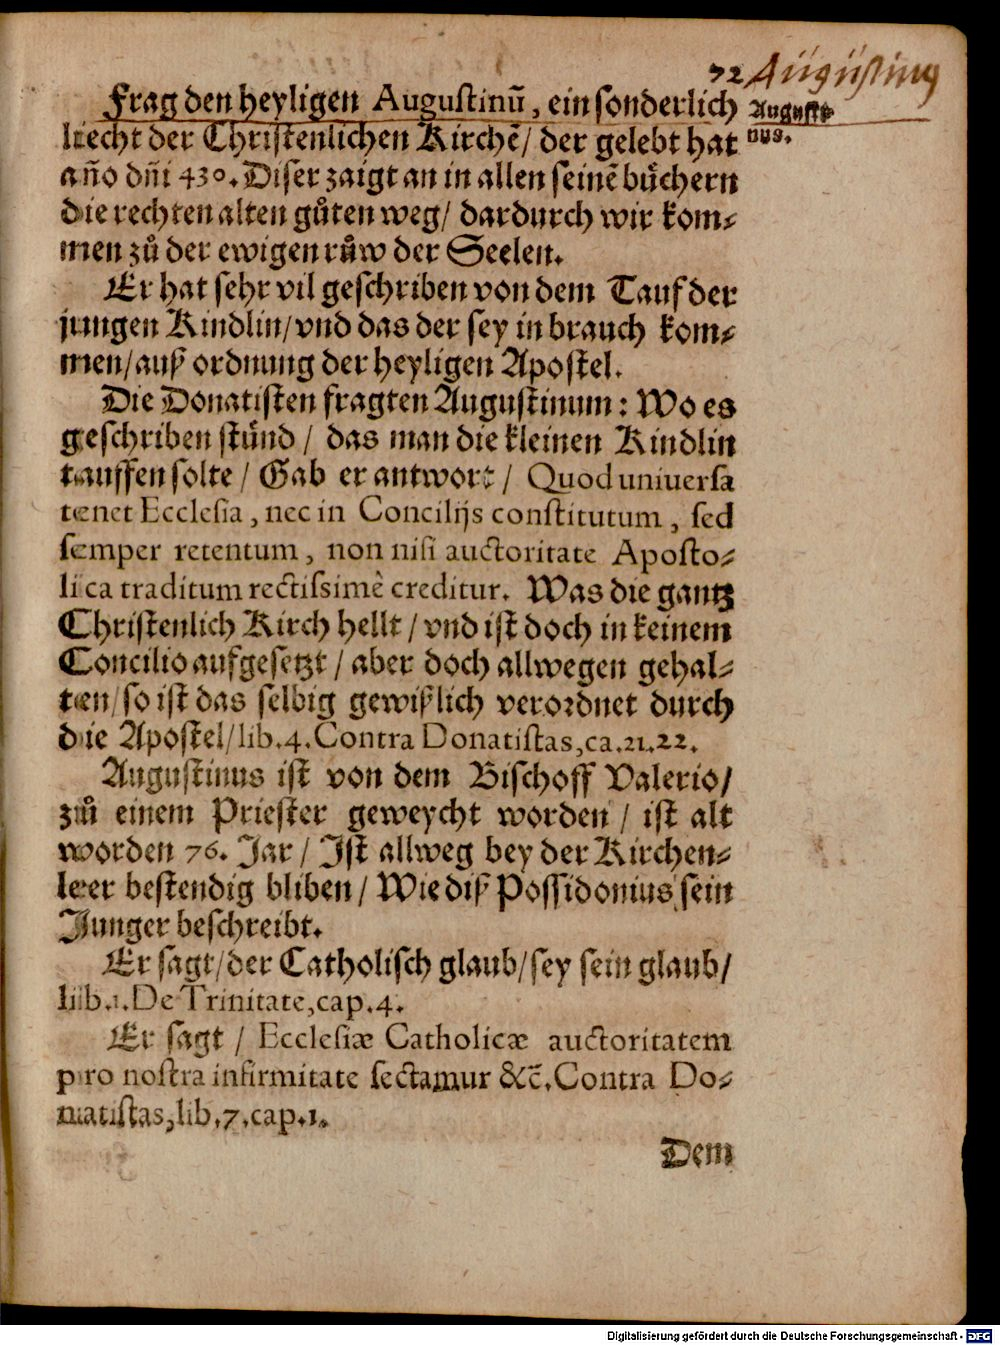 72 Augustinus
Frag den heyligen Augustinũ, ein sonderlich
Augusti-
nus.
liecht der Christenlichen Kirchẽ/ der gelebt hat
año dñi 430. Diser zaigt an in allen seinẽ bůchern
die rechten alten gůten weg/ dardurch wir kom-
men zů der ewigen růw der Seelen.
Er hat sehr vil geschriben von dem Tauf der
jungen Kindlin/vnd das der sey in brauch kom-
men/auß ordnung der heyligen Apostel.
Die Donatisten fragten Augustinum: Wo es
geschriben stünd / das man die kleinen Kindlin
tauffen solte / Gab er antwort / Quod uniuersa
tenet Ecclesia, nec in Concilijs constitutum, sed
semper retentum, non nisi auctoritate Aposto-
lica traditum rectissimè creditur. Was die gantz
Christenlich Kirch hellt / vnd ist doch in keinem
Concilio aufgesetzt / aber doch allwegen gehal-
ten/so ist das selbig gewißlich verordnet durch
die Apostel/lib.4. Contra Donatistas, ca.21.22.
Augustinus ist von dem Bischoff Valerio/
zů einem Priester geweycht worden / ist alt
worden 76. Jar / Ist allweg bey der Kirchen-
leer bestendig bliben / Wie diß Possidonius sein
Junger beschreibt.
Er sagt/der Catholisch glaub/sey sein glaub/
lib.1. De Trinitate, cap.4.
Er sagt / Ecclesiæ Catholicæ auctoritatem
pro nostra infirmitate sectamur &c̃. Contra Do-
natistas, lib.7.cap.1.
Dem
Digitalisierung gefördert durch die Deutsche Forschungsgemeinschaft - DFG